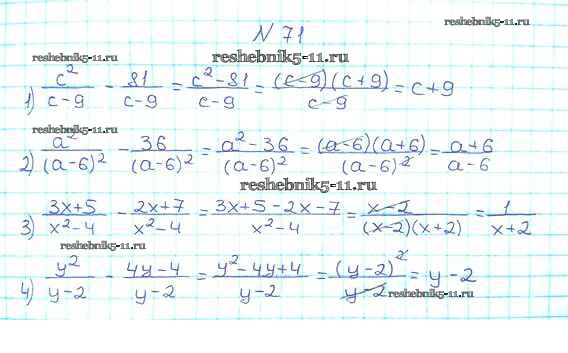 N 71
reshebnik5-11.ru
reshebnik5-11.ru
reshebnik5-11.ru
1) c²/(c-9) - 81/(c-9) = (c²-81)/(c-9) = (c-9)(c+9)/(c-9) = c+9
reshebnik5-11.ru
2) a²/(a-6)² - 36/(a-6)² = (a²-36)/(a-6)² = (a-6)(a+6)/(a-6)² = (a+6)/(a-6)
reshebnik5-11.ru
3) (3x+5)/(x²-4) - (2x+7)/(x²-4) = (3x+5-2x-7)/(x²-4) = (x-2)/((x-2)(x+2)) = 1/(x+2)
reshebnik5-11.ru
4) y²/(y-2) - (4y-4)/(y-2) = (y²-4y+4)/(y-2) = (y-2)²/(y-2) = y-2
reshebnik5-11.ru